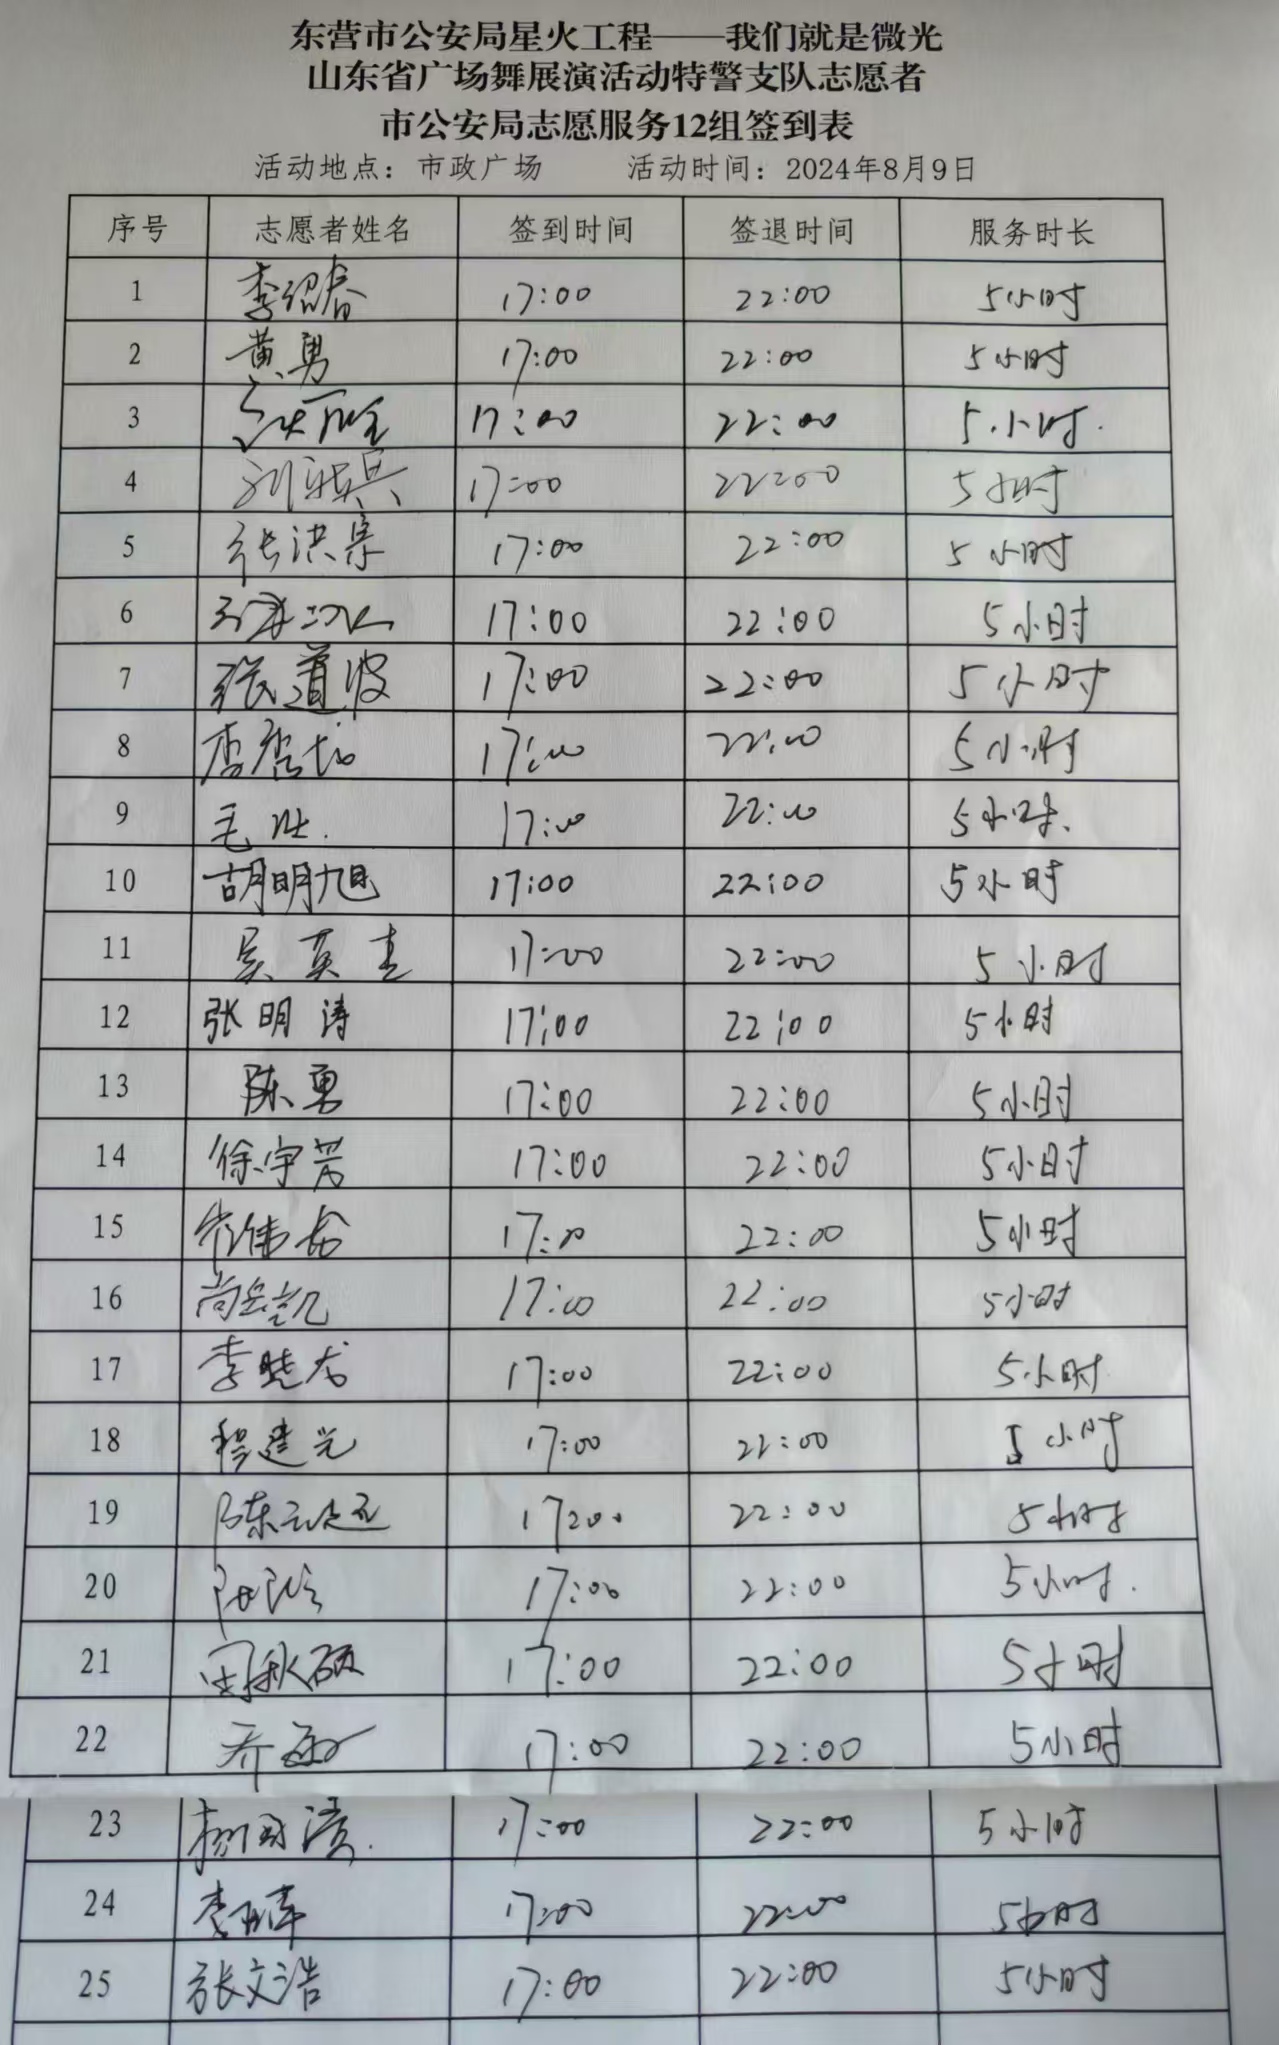 东营市公安局星火工程——我们就是微光
山东省广场舞展演活动特警支队志愿者
市公安局志愿服务12组签到表
活动地点：市政广场 活动时间：2024年8月9日
序号 志愿者姓名 签到时间 签退时间 服务时长
1 李绍春 17:00 22:00 5小时
2 黄勇 17:00 22:00 5小时
3 17:00 22:00 5小时
4 17:00 22:00 5小时
5 张洪亮 17:00 22:00 5小时
6 17:00 22:00 5小时
7 张道波 17:00 22:00 5小时
8 17:00 22:00 5小时
9 毛壮 17:00 22:00 5小时
10 胡明旭 17:00 22:00 5小时
11 吴英圭 17:00 22:00 5小时
12 张明涛 17:00 22:00 5小时
13 陈勇 17:00 22:00 5小时
14 徐宇芳 17:00 22:00 5小时
15 17:00 22:00 5小时
16 尚岳凯 17:00 22:00 5小时
17 李晓龙 17:00 22:00 5小时
18 程建光 17:00 22:00 5小时
19 17:00 22:00 5小时
20 17:00 22:00 5小时
21 田秋硕 17:00 22:00 5小时
22 17:00 22:00 5小时
23 17:00 22:00 5小时
24 17:00 22:00 5小时
25 张文浩 17:00 22:00 5小时